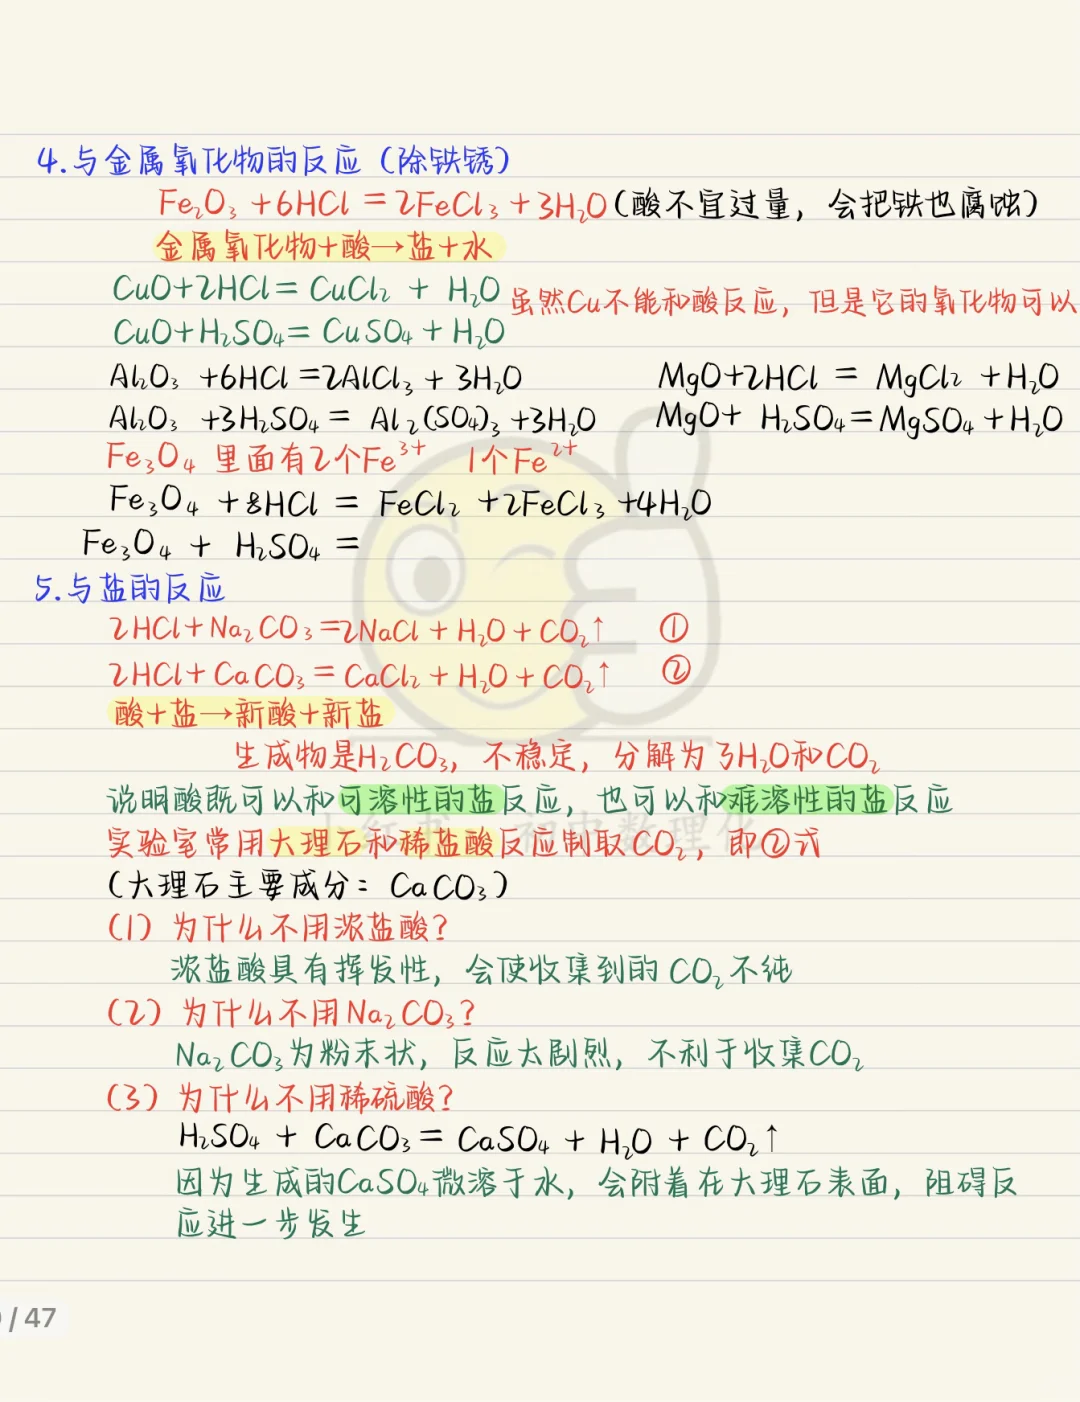 4.与金属氧化物的反应（除铁锈）
Fe₂O₃+6HCl=2FeCl₃+3H₂O（酸不宜过量，会把铁也腐蚀）
金属氧化物+酸→盐+水
CuO+2HCl=CuCl₂+H₂O 虽然Cu不能和酸反应，但是它的氧化物可以
CuO+H₂SO₄=CuSO₄+H₂O
Al₂O₃+6HCl=2AlCl₃+3H₂O MgO+2HCl=MgCl₂+H₂O
Al₂O₃+3H₂SO₄=Al₂(SO₄)₃+3H₂O MgO+H₂SO₄=MgSO₄+H₂O
Fe₃O₄里面有2个Fe³⁺ 1个Fe²⁺
Fe₃O₄+8HCl=FeCl₂+2FeCl₃+4H₂O
Fe₃O₄+H₂SO₄=
5.与盐的反应
2HCl+Na₂CO₃=2NaCl+H₂O+CO₂↑ ①
2HCl+CaCO₃=CaCl₂+H₂O+CO₂↑ ②
酸+盐→新酸+新盐
生成物是H₂CO₃，不稳定，分解为了H₂O和CO₂
说明酸既可以和可溶性的盐反应，也可以和难溶性的盐反应
实验室常用大理石和稀盐酸反应制取CO₂，即②式
（大理石主要成分：CaCO₃）
（1）为什么不用浓盐酸？
浓盐酸具有挥发性，会使收集到的CO₂不纯
（2）为什么不用Na₂CO₃？
Na₂CO₃为粉末状，反应太剧烈，不利于收集CO₂
（3）为什么不用稀硫酸？
H₂SO₄+CaCO₃=CaSO₄+H₂O+CO₂↑
因为生成的CaSO₄微溶于水，会附着在大理石表面，阻碍反
应进一步发生
/47